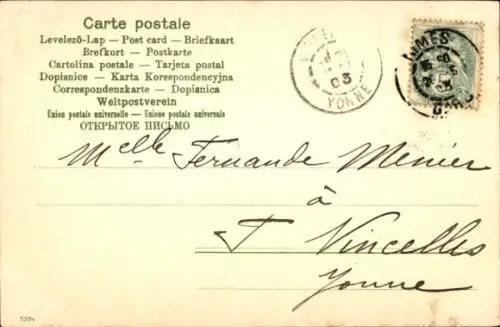 Carte postale
Levelező-Lap — Post card — Briefkaart
Brefkort — Postkarte
Cartolina postale — Tarjeta postal
Dopisnice — Karta Korespondencyjna
Correspondenzkarte — Dopisnica
Weltpostverein
Union postale universelle — Unione postale universale
ОТКРЫТОЕ ПИСЬМО
03
YONNE
NIMES
GARD
Melle Fernande Menier
à
Vincelles
Yonne